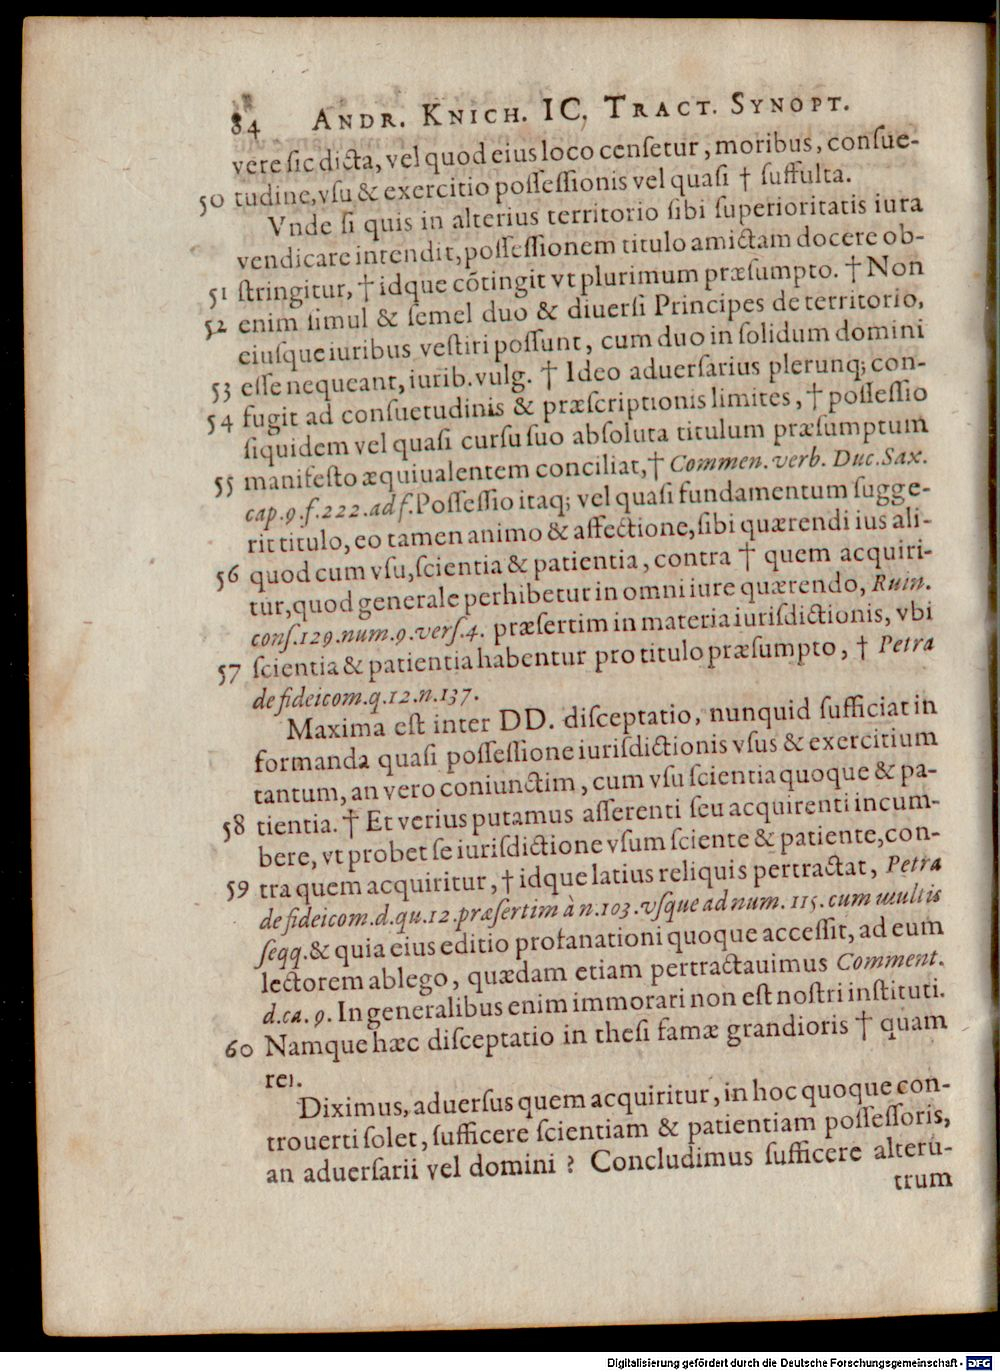 84 ANDR. KNICH. IC, TRACT. SYNOPT.
vere ſic dicta, vel quod eius loco cenſetur, moribus, conſue-
50 tudine, vſu & exercitio poſſeſſionis vel quaſi † ſuffulta.
Vnde ſi quis in alterius territorio ſibi ſuperioritatis iura
vendicare intendit, poſſeſſionem titulo amictam docere ob-
51 ſtringitur, † idque cõtingit vt plurimum præſumpto. † Non
52 enim ſimul & ſemel duo & diuerſi Principes de territorio,
eiuſque iuribus veſtiri poſſunt, cum duo in ſolidum domini
53 eſſe nequeant, iurib. vulg. † Ideo aduerſarius plerunq; con-
54 fugit ad conſuetudinis & præſcriptionis limites, † poſſeſſio
ſiquidem vel quaſi curſu ſuo abſoluta titulum præſumptum
55 manifeſto æquiualentem conciliat, † Commen. verb. Duc. Sax.
cap. 9. f. 222. ad f. Poſſeſſio itaq; vel quaſi fundamentum ſugge-
rit titulo, eo tamen animo & affectione, ſibi quærendi ius ali-
56 quod cum vſu, ſcientia & patientia, contra † quem acquiri-
tur, quod generale perhibetur in omni iure quærendo, Ruin.
conſ. 129. num. 9. verſ. 4. præſertim in materia iuriſdictionis, vbi
57 ſcientia & patientia habentur pro titulo præſumpto, † Petra
de fideicom. q. 12. n. 137.
Maxima eſt inter DD. diſceptatio, nunquid ſufficiat in
formanda quaſi poſſeſſione iuriſdictionis vſus & exercitium
tantum, an vero coniunctim, cum vſu ſcientia quoque & pa-
58 tientia. † Et verius putamus aſſerenti ſeu acquirenti incum-
bere, vt probet ſe iuriſdictione vſum ſciente & patiente, con-
59 tra quem acquiritur, † idque latius reliquis pertractat, Petra
de fideicom. d. qu. 12. præſertim à n. 103. vſque ad num. 115. cum multis
ſeqq. & quia eius editio profanationi quoque acceſſit, ad eum
lectorem ablego, quædam etiam pertractauimus Comment.
d. ca. 9. In generalibus enim immorari non eſt noſtri inſtituti.
60 Namque hæc diſceptatio in theſi famæ grandioris † quam
rei.
Diximus, aduerſus quem acquiritur, in hoc quoque con-
trouerti ſolet, ſufficere ſcientiam & patientiam poſſeſſoris,
an aduerſarii vel domini? Concludimus ſufficere alterū-
trum
Digitalisierung gefördert durch die Deutsche Forschungsgemeinschaft - DFG